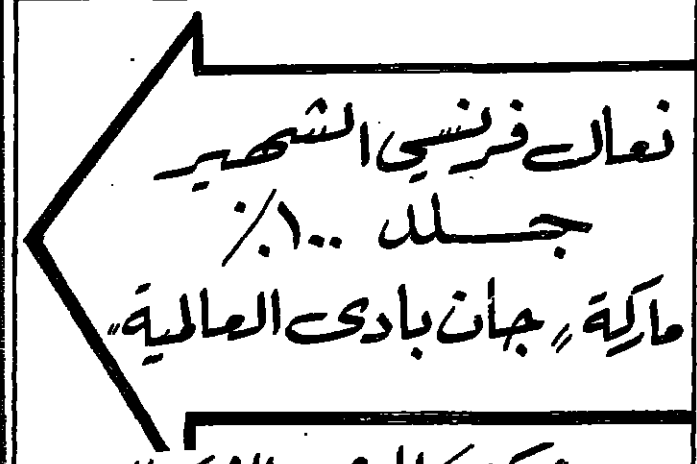 نعال فرنسي الشهير
جلد ١٠٠٪
ماركة „ جان بادى العالمية "